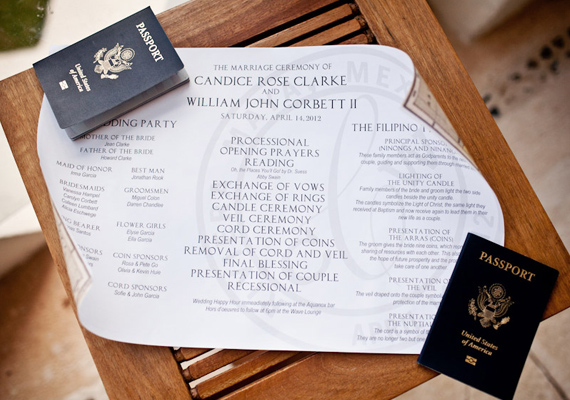 PASSPORT
United States
of America
THE MARRIAGE CEREMONY OF
CANDICE ROSE CLARKE
AND
WILLIAM JOHN CORBETT II
SATURDAY, APRIL 14, 2012
DING PARTY
MOTHER OF THE BRIDE
Jean Clarke
FATHER OF THE BRIDE
Howard Clarke
MAID OF HONOR
BEST MAN
Jonathan Rook
BRIDESMAIDS
Vanessa Hempel
Carolyn Corbett
Colleen Lumbard
GROOMSMEN
Miguel Colon
Darren Chandlee
NG BEARER
Santos
FLOWER GIRLS
Elyse Garcia
Ella Garcia
SPONSORS
COIN SPONSORS
Rosa & Pete Go
Olivia & Kevin Huie
CORD SPONSORS
Sofie & John Garcia
PROCESSIONAL
OPENING PRAYERS
READING
Oh, the Places You'll Go! by Dr. Suess
Abby Swain
EXCHANGE OF VOWS
EXCHANGE OF RINGS
CANDLE CEREMONY
VEIL CEREMONY
CORD CEREMONY
PRESENTATION OF COINS
REMOVAL OF CORD AND VEIL
FINAL BLESSING
PRESENTATION OF COUPLE
RECESSIONAL
Wedding Happy Hour immediately following at the Aquarius Bar
Hors d'oeuvres to follow at 6pm at the Wave Lounge
THE FILIPINO T
PRINCIPAL SPONSO
(NINONGS AND NINANG
These family members act as Godparents to the
couple, guiding and supporting them through
LIGHTING OF
THE UNITY CANDLE
Family members of the bride and groom light the two side
candles beside the unity candle.
The candles symbolize the Light of Christ, the same light they
received at Baptism and now receive again to lead them in their
new life as a couple.
PRESENTATION OF
THE ARRAS (COINS)
The groom gives the bride nine coins, which
sharing of resources with each other. This
the hope of future prosperity and the
take care of one another.
PRESENTATION
THE VEIL
The veil draped over the couple symbol
protection of the
PRESENTA
THE NUPTIA
The cord is a symbol of
They are no longer two but
PASSPORT
United States
of America